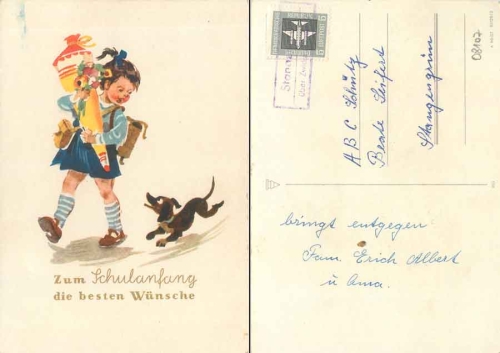 Zum Schulanfang
die besten Wünsche
08107
A B C Schütz
Beate Seifert
Stangengrün
bringt entgegen
Fam. Erich Albert
u. Oma.